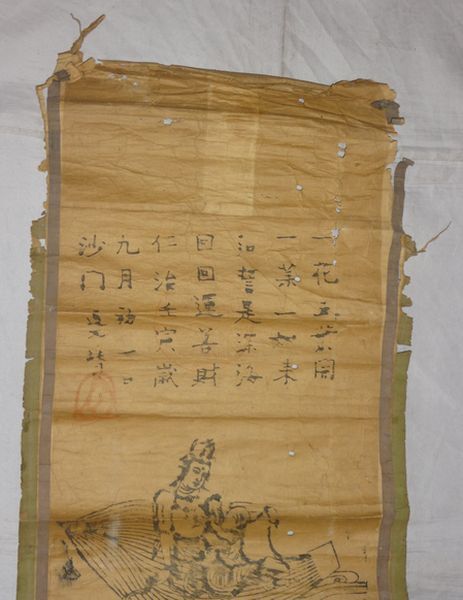 一花五葉開
一葉一如来
弘誓是深海
回回運善財
仁治壬寅歳
九月初一日
沙门道元